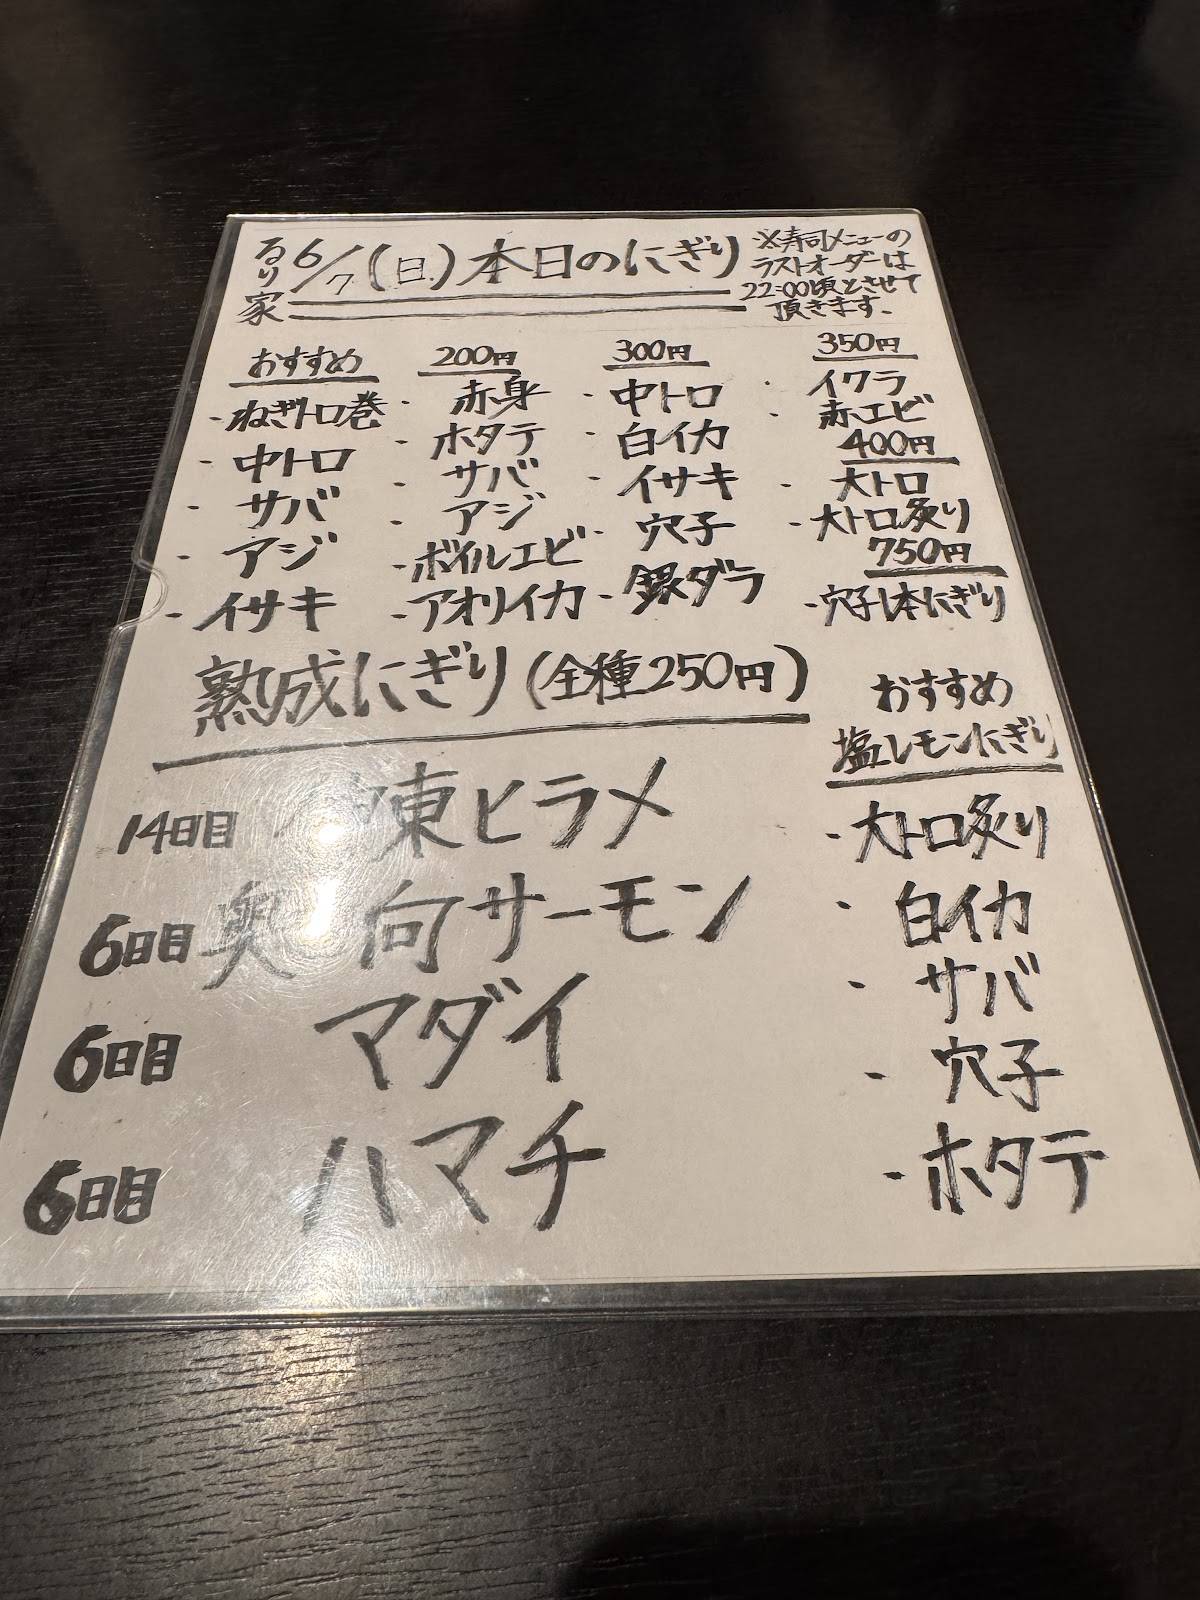 るり家 6/7(日) 本日のにぎり
※寿司メニューの
ラストオーダーは
22:00頃とさせて
頂きます.
おすすめ
・ねぎトロ巻
・中トロ
・サバ
・アジ
・イサキ
200円
・赤身
・ホタテ
・サバ
・アジ
・ボイルエビ
・アオリイカ
300円
・中トロ
・白イカ
・イサキ
・穴子
・銀ダラ
350円
・イクラ
・赤エビ
400円
・大トロ
・大トロ炙り
750円
・穴子1本にぎり
熟成にぎり(全種250円)
14日目 東ヒラメ
6日目 奥 向サーモン
6日目 マダイ
6日目 ハマチ
おすすめ
塩レモンにぎり
・大トロ炙り
・白イカ
・サバ
・穴子
・ホタテ